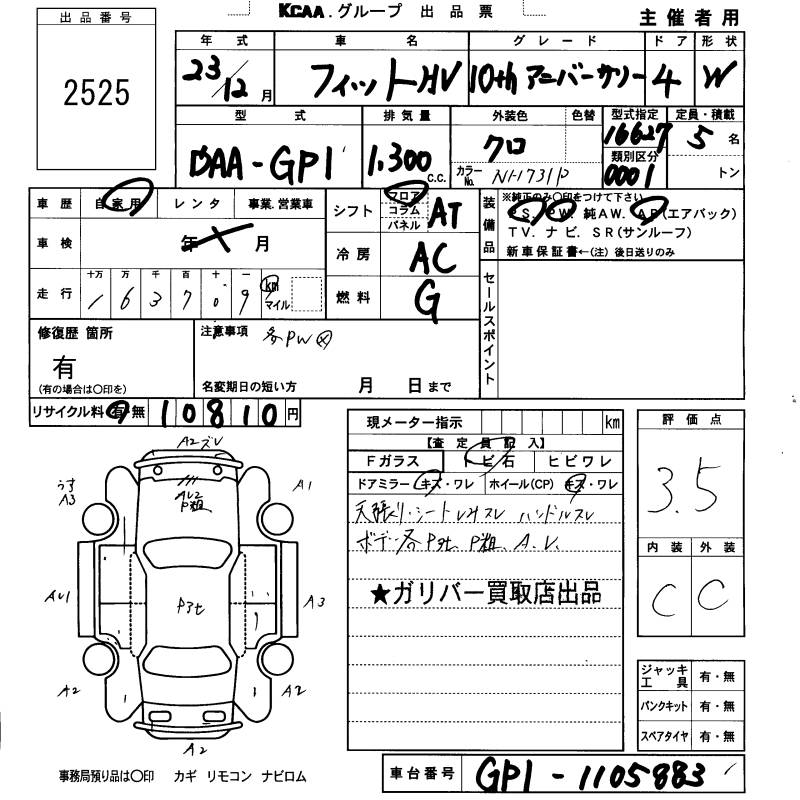 KCAA.グループ 出品票
主催者用
出品番号
2525
年式 車名 グレード ドア 形状
23/12月 フィットHV 10thアニバーサリー 4 W
型式 排気量 外装色 色替 型式指定 定員・積載
DAA-GP1 1,300 c.c. クロ 16627 5名
カラーNo. NH731P 類別区分 0001 トン
車歴 自家用 レンタ 事業.営業車
シフト フロア コラム パネル AT
装備品 ※純正のみ〇印をつけて下さい
PS. PW. 純AW. AB(エアバック)
TV. ナビ. SR(サンルーフ)
新車保証書←(注) 後日送りのみ
車検 年 月
冷房 AC
走行 十万 万 千 百 十 一
1 6 3 7 0 9 km マイル
燃料 G
セールスポイント
修復歴 箇所
有
(有の場合は〇印を)
注意事項 各PW
名変期日の短い方 月 日まで
リサイクル料 有 無 10810円
現メーター指示 km
評価点
3.5
【査定員記入】
Fガラス トビ石 ヒビワレ
ドアミラー キズ・ワレ ホイール(CP) キズ・ワレ
天張り・シートレスレ ハンドルスレ
ボデー各P3t. P粗. A.U.
★ガリバー買取店出品
内装 外装
C C
A2ズレ
うす A3
AU2
P粗
A1
AU1
P3t
A3
A2
A2
A2
ジャッキ工具 有・無
パンクキット 有・無
スペアタイヤ 有・無
事務局預り品は〇印 カギ リモコン ナビロム
車台番号 GP1-1105883